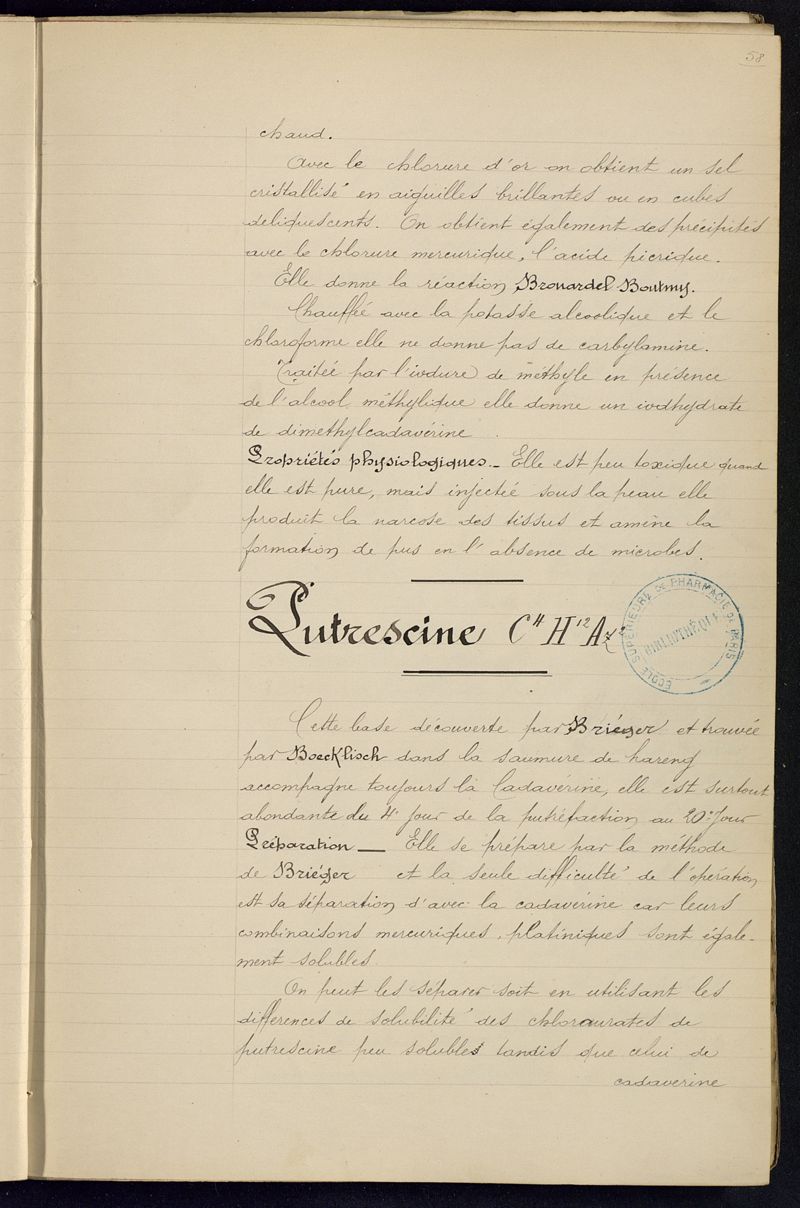 58
chaud.
Avec le chlorure d'or on obtient un sel
cristallisé en aiguilles brillantes ou en cubes
déliquescents. On obtient également des précipités
avec le chlorure mercurique, l'acide picrique.
Elle donne la réaction Brouardel-Boutmy.
Chauffée avec la potasse alcoolique et le
chloroforme elle ne donne pas de carbylamine.
Traitée par l'iodure de méthyle en présence
de l'alcool méthylique elle donne un iodhydrate
de dimethylcadavérine
Propriétés physiologiques.- Elle est peu toxique quand
elle est pure, mais injectée sous la peau elle
produit la narcose des tissus et amène la
formation de pus en l'absence de microbes.
Putrescine C⁴H¹²Az²
ÉCOLE SUPÉRIEURE DE PHARMACIE DE PARIS
BIBLIOTHÈQUE
Cette base découverte par Briéger et trouvée
par Boecklisch dans la saumure de hareng
accompagne toujours la Cadavérine, elle est surtout
abondante du 4e Jour de la putréfaction au 20e Jour
Préparation — Elle se prépare par la méthode
de Briéger et la seule difficulté de l'opération
est sa séparation d'avec la cadavérine car leurs
combinaisons mercuriques, platiniques sont égale-
ment solubles.
On peut les séparer soit en utilisant les
différences de solubilité des chloraurates de
putrescine peu solubles tandis que celui de
cadaverine